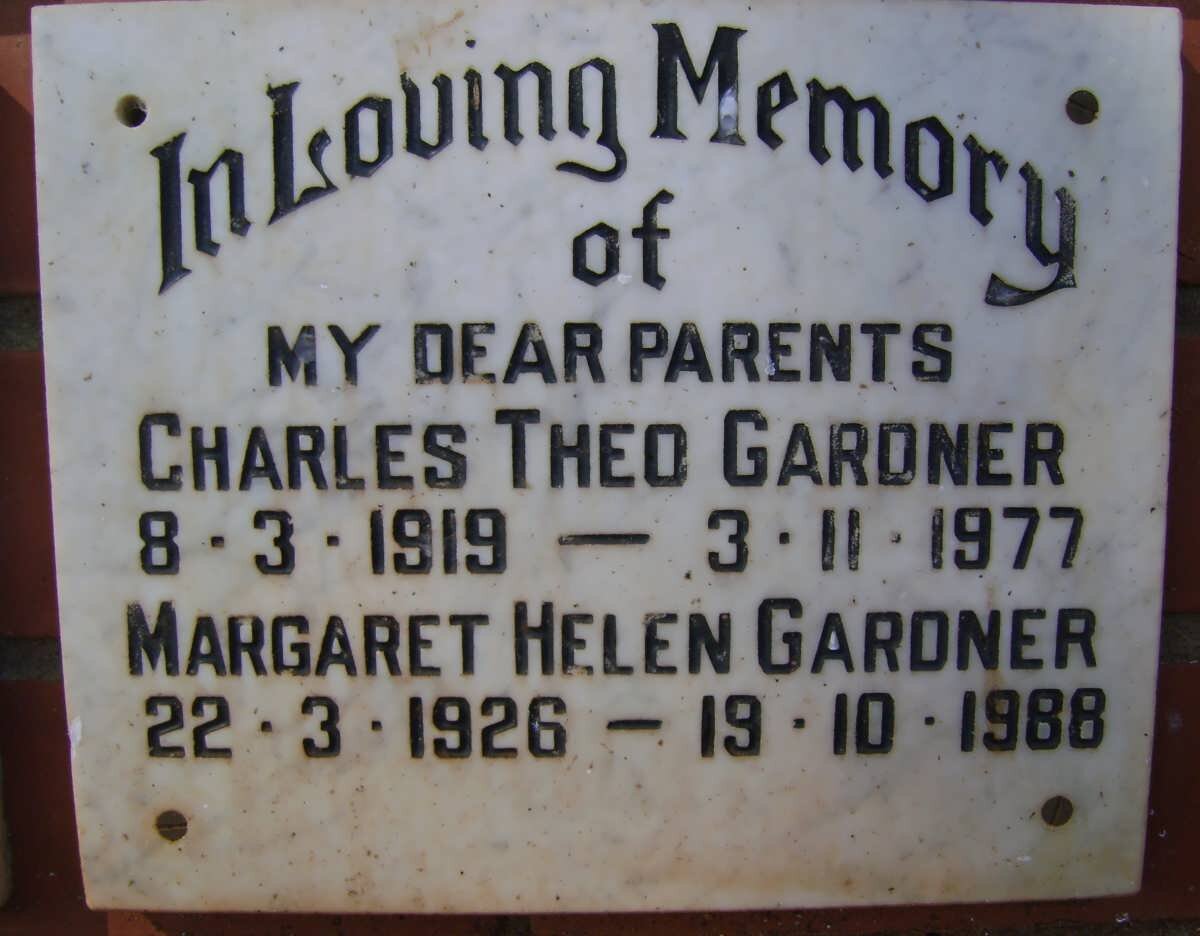 In Loving Memory
of
MY DEAR PARENTS
CHARLES THEO GARDNER
8·3·1919 — 3·11·1977
MARGARET HELEN GARDNER
22·3·1926 — 19·10·1988